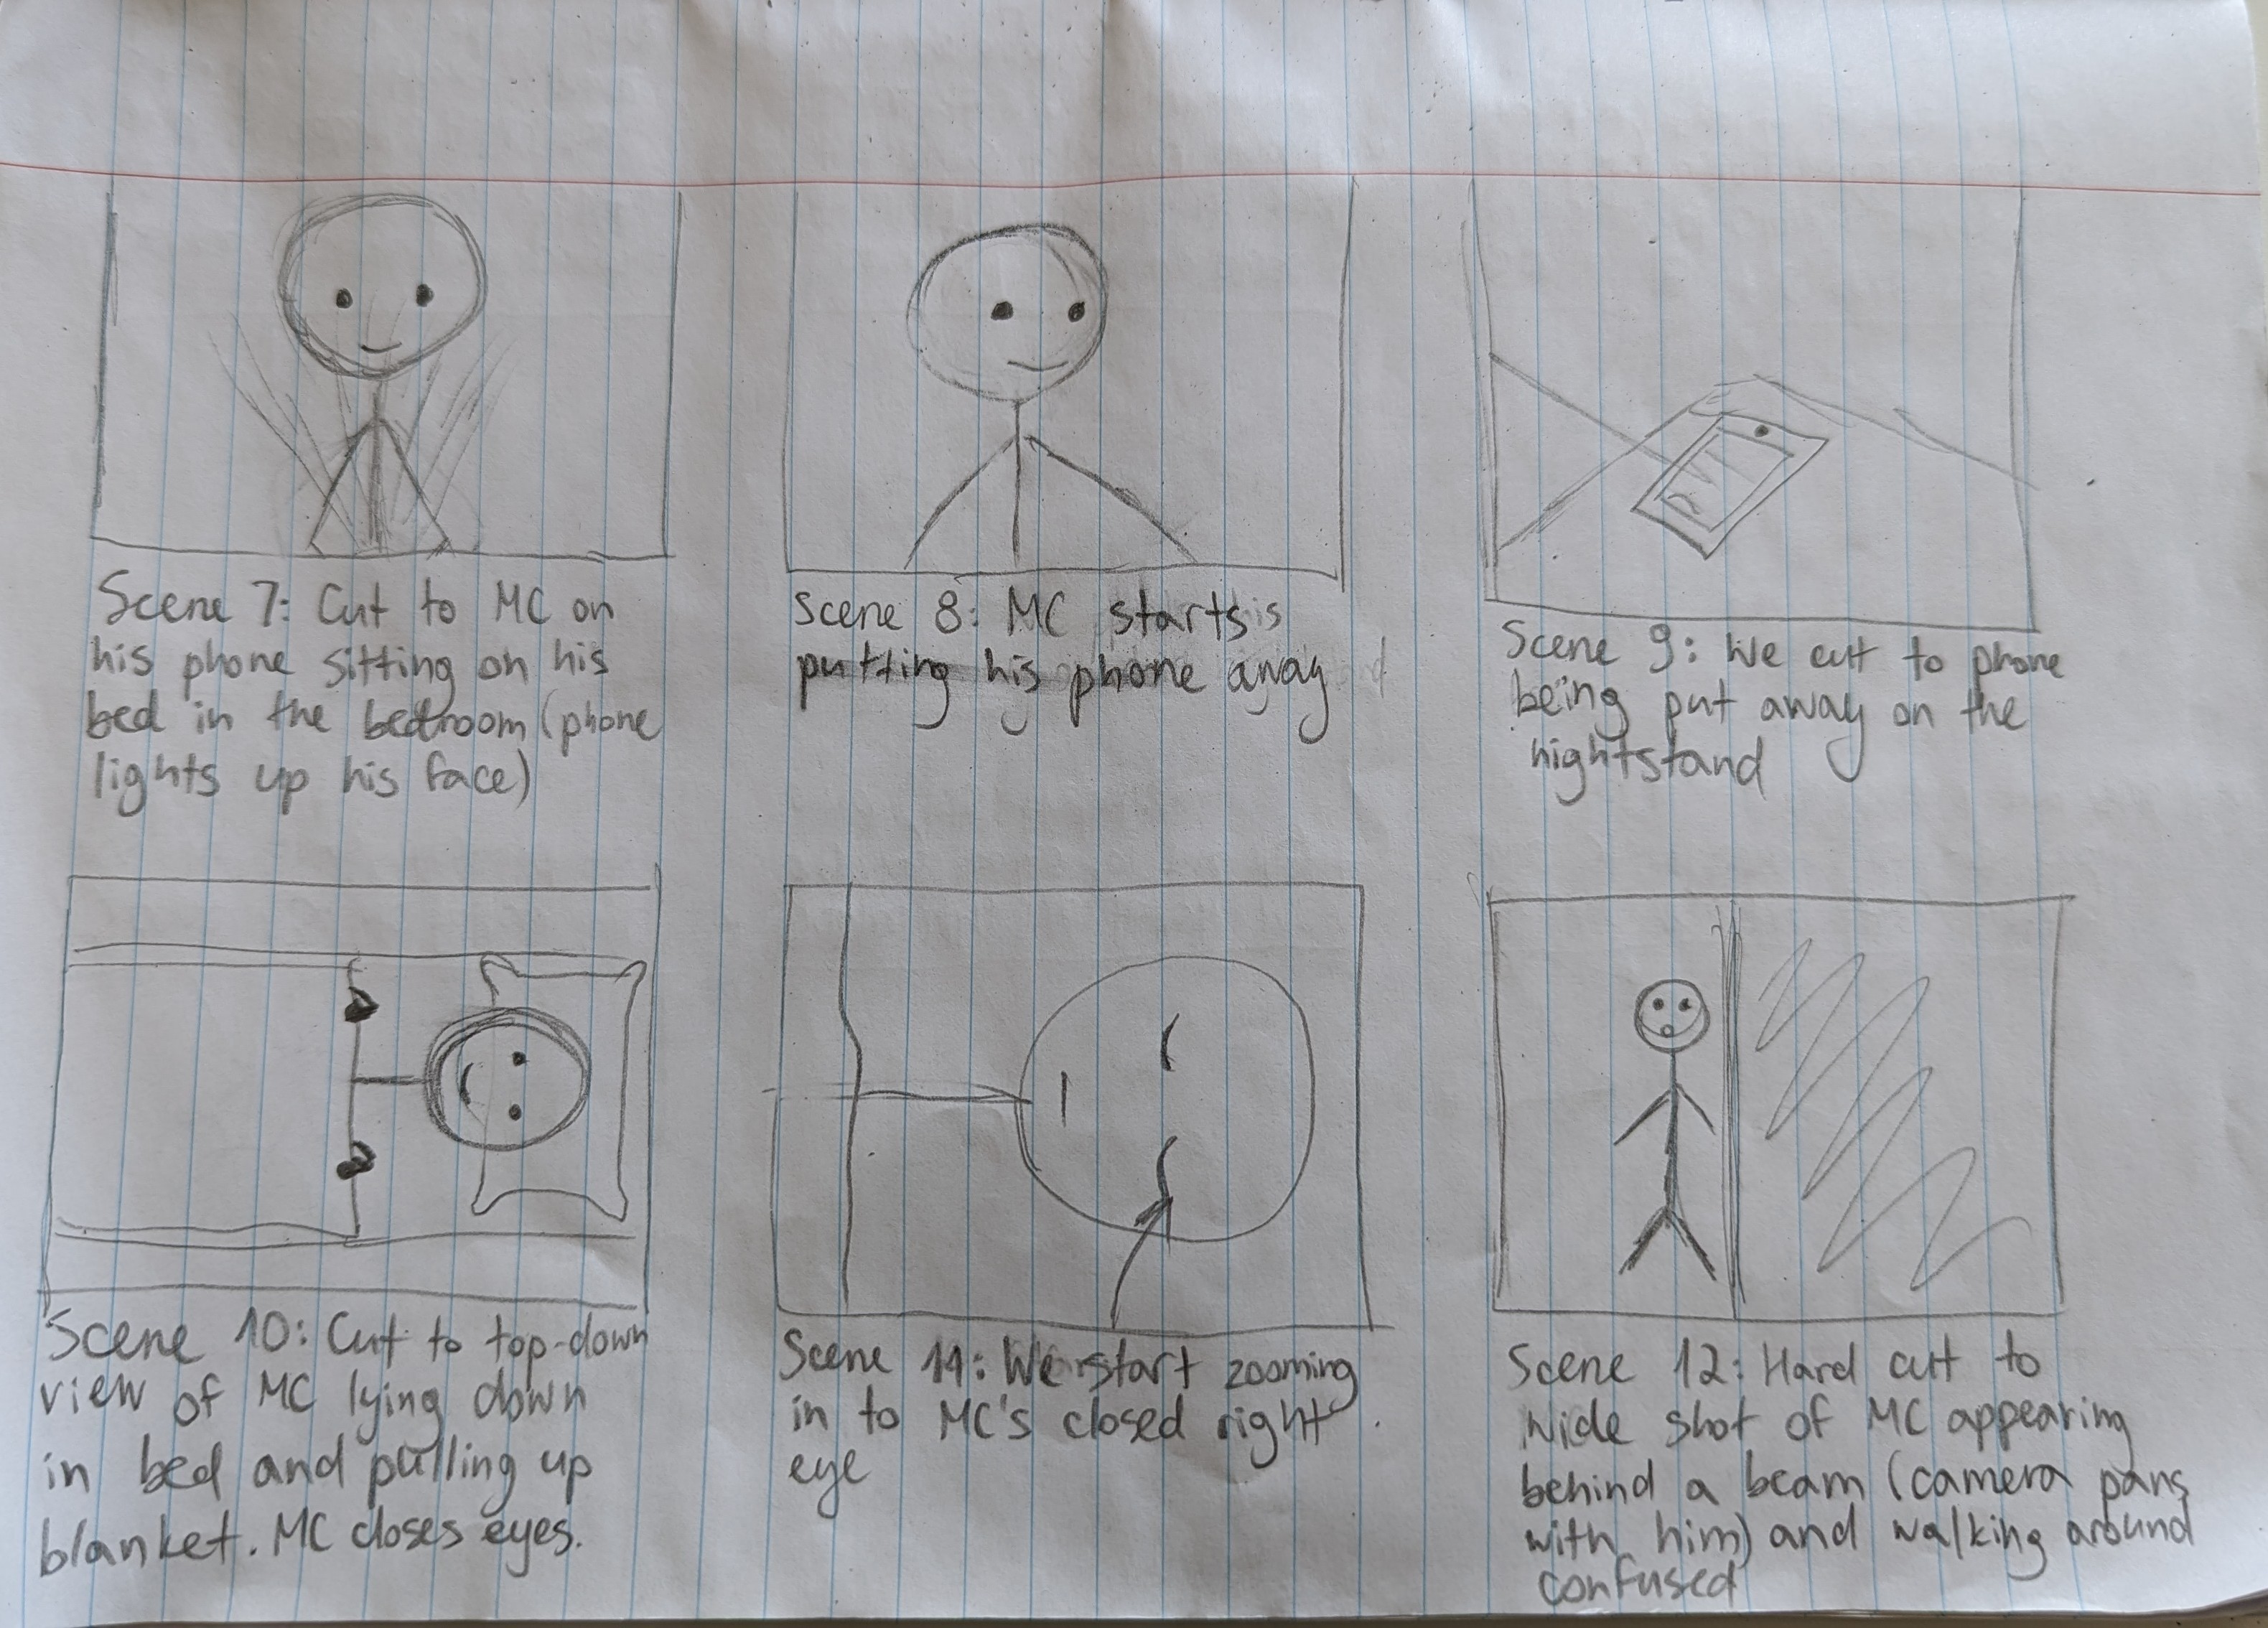 Scene 7: Cut to MC on
his phone sitting on his
bed in the bedroom (phone
lights up his face)
Scene 8: MC starts
putting his phone away
Scene 9: We cut to phone
being put away on the
nightstand
Scene 10: Cut to top-down
view of MC lying down
in bed and pulling up
blanket. MC closes eyes.
Scene 11: We start zooming
in to MC's closed right
eye
Scene 12: Hard cut to
wide shot of MC appearing
behind a beam (camera pans
with him) and walking around
confused